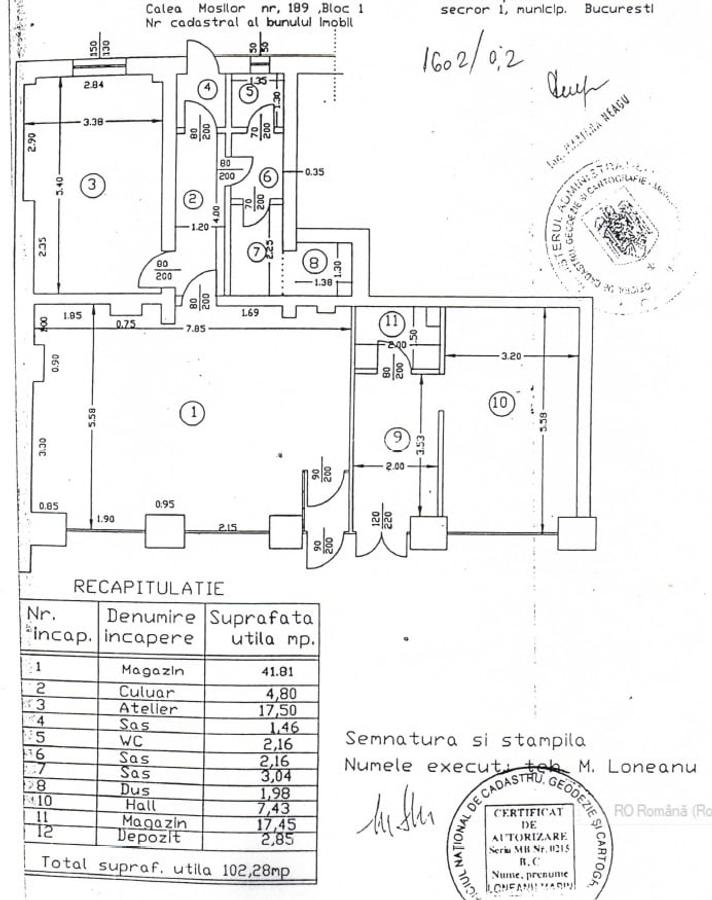 Calea Mosilor nr, 189 ,Bloc 1
secror 1, municip. Bucuresti
Nr cadastral al bunului imobil
1602/0,2
150
130
50
50
2.84
4
5
1.35
1.30
3.38
2.90
80
200
70
200
ing. RAMONA NEAGU
3
5.40
80
200
6
0.35
2
4.00
70
200
1.20
2.35
7
2.25
8
1.30
80
200
1.38
80
200
1.85
0.75
1.69
7.85
1.00
11
.50
2.00
0.90
80
200
3.20
1
5.58
10
5.58
9
3.53
3.30
2.00
90
200
0.85
0.95
1.90
2.15
90
200
120
220
RECAPITULATIE
Nr. incap. Denumire incapere Suprafata utila mp.
1 Magazin 41.81
2 Culuar 4,80
3 Atelier 17,50
4 Sas 1,46
5 WC 2,16
6 Sas 2,16
7 Sas 3,04
8 Dus 1,98
10 Hall 7,43
11 Magazin 17,45
12 Depozit 2,85
Total supraf. utila 102,28mp
Semnatura si stampila
Numele execut: teh. M. Loneanu
DE CADASTRU, GEODEZIE ȘI CARTOGR
CERTIFICAT
DE
AUTORIZARE
Seria MB Nr. 0215
B, C
Nume, prenume
LONEANU MARIN
RO Română (Ro